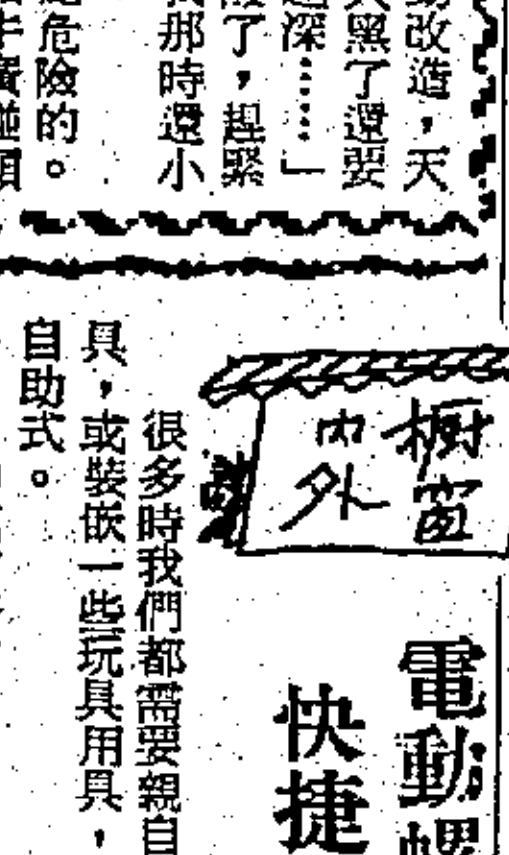 動改造，天
黑了還要
深……」
了，趕緊
那時還小
危險的。
櫥窗
內外
電動螺
快捷
很多時我們都需要親自
具，或裝嵌一些玩具用具，
自助式。